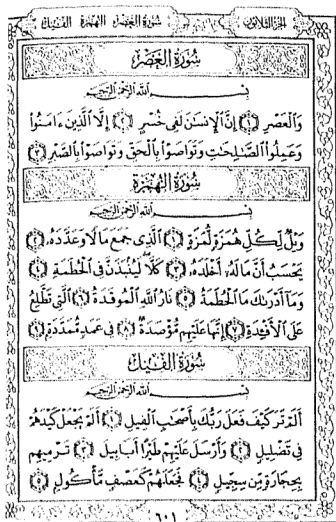 سُورَةُ العَصْرِ الهُمَزَةِ الفِيلِ الجُزْءُ الثَّلَاثُونَ
سُورَةُ العَصْرِ
بِسْمِ ٱللَّهِ ٱلرَّحْمَٰنِ ٱلرَّحِيمِ
وَٱلْعَصْرِ ١ إِنَّ ٱلْإِنسَٰنَ لَفِى خُسْرٍ ٢ إِلَّا ٱلَّذِينَ ءَامَنُوا۟
وَعَمِلُوا۟ ٱلصَّٰلِحَٰتِ وَتَوَاصَوْا۟ بِٱلْحَقِّ وَتَوَاصَوْا۟ بِٱلصَّبْرِ ٣
سُورَةُ الهُمَزَةِ
بِسْمِ ٱللَّهِ ٱلرَّحْمَٰنِ ٱلرَّحِيمِ
وَيْلٌ لِّكُلِّ هُمَزَةٍ لُّمَزَةٍ ١ ٱلَّذِى جَمَعَ مَالًا وَعَدَّدَهُۥ ٢
يَحْسَبُ أَنَّ مَالَهُۥٓ أَخْلَدَهُۥ ٣ كَلَّا ۖ لَيُنۢبَذَنَّ فِى ٱلْحُطَمَةِ ٤
وَمَآ أَدْرَىٰكَ مَا ٱلْحُطَمَةُ ٥ نَارُ ٱللَّهِ ٱلْمُوقَدَةُ ٦ ٱلَّتِى تَطَّلِعُ
عَلَى ٱلْأَفْـِٔدَةِ ٧ إِنَّهَا عَلَيْهِم مُّؤْصَدَةٌ ٨ فِى عَمَدٍ مُّمَدَّدَةٍۭ ٩
سُورَةُ الفِيلِ
بِسْمِ ٱللَّهِ ٱلرَّحْمَٰنِ ٱلرَّحِيمِ
أَلَمْ تَرَ كَيْفَ فَعَلَ رَبُّكَ بِأَصْحَٰبِ ٱلْفِيلِ ١ أَلَمْ يَجْعَلْ كَيْدَهُمْ
فِى تَضْلِيلٍ ٢ وَأَرْسَلَ عَلَيْهِمْ طَيْرًا أَبَابِيلَ ٣ تَرْمِيهِم
بِحِجَارَةٍ مِّن سِجِّيلٍ ٤ فَجَعَلَهُمْ كَعَصْفٍ مَّأْكُولٍۭ ٥
٦٠١